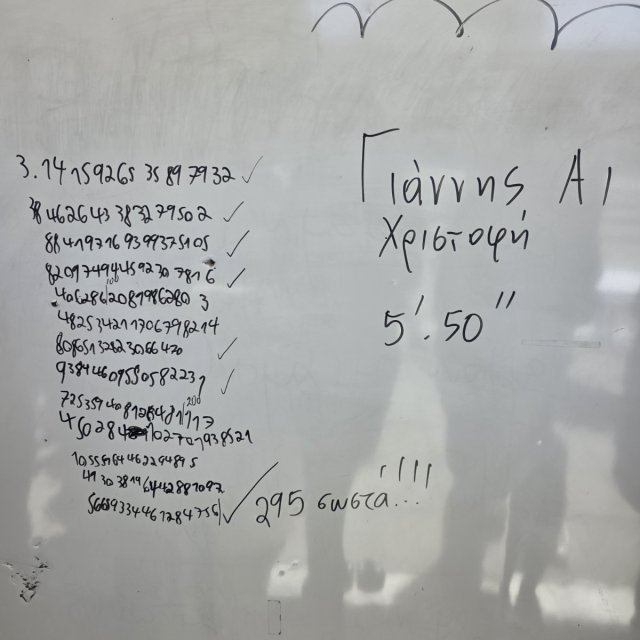 3.1415926535897932
38462643383279502
884197169399375105
820974944592307816
4062862089986280 3
100
48253421170679 8214
808651328230664 70
9384460955058223 1
200
7253594081284811 17
4502841027019 38521
1055596446229489 5
4930381964428810 97
5665933446128475 6
295 σωστα...!!!!
Γιάννης Α1
Χριστοφή
5'.50"